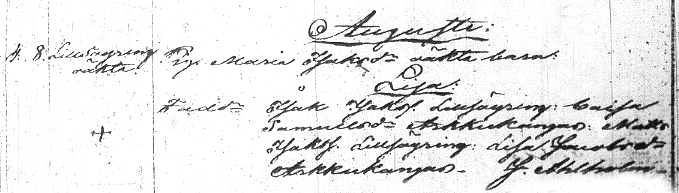 Augusti:
4. 8. Lillsjögring Pig. Maria Isaksdr oäkta barn:
oäkta. Lisa:
Fadd: Isak Isaksf. Lillsjögring: Caisa
Samuelsdr Arkkukangas: Matts
Isaksf. Lillsjögring: Lisa Jacobsdr
Arkkukangas. J. Ahlholm.